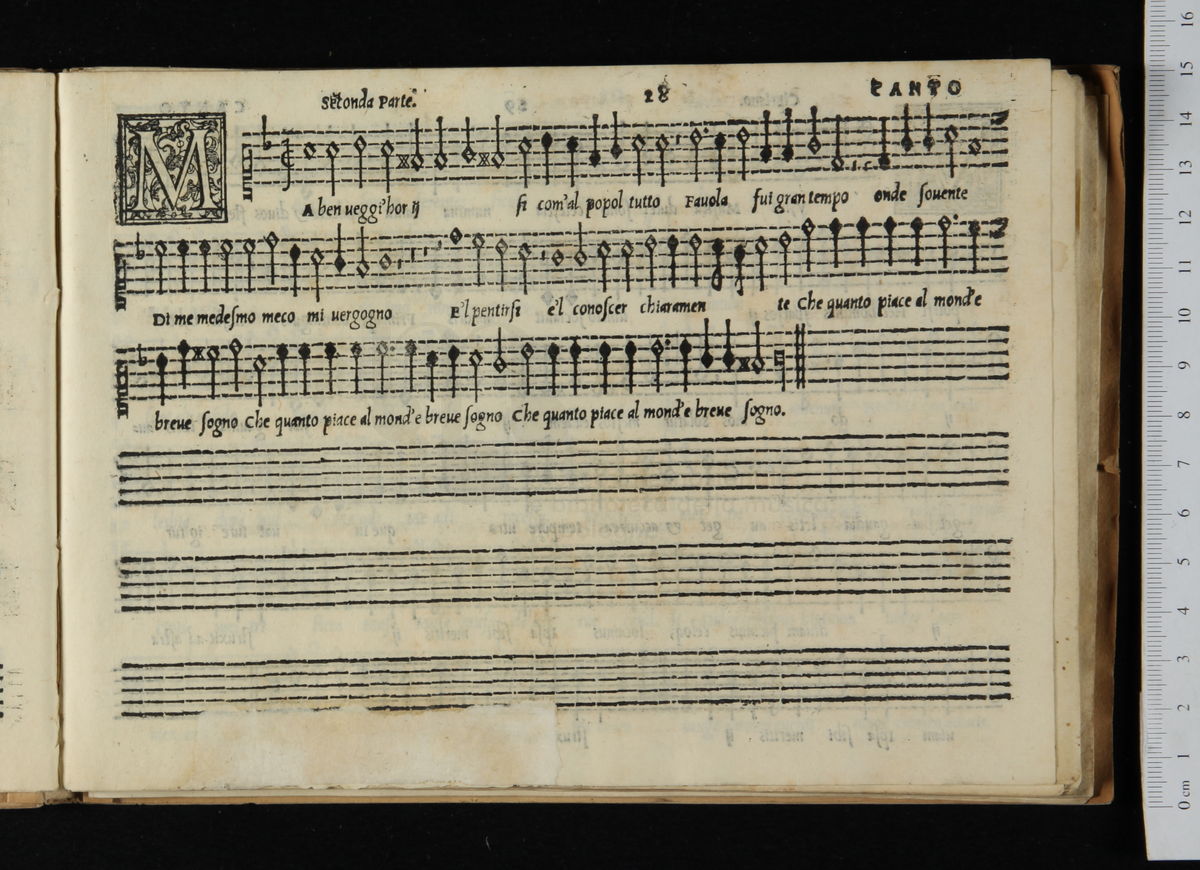 Seconda Parte. 28 CANTO
M
A ben ueggi'hor ij ſi com'al popol tutto Fauola fui gran tempo onde ſouente
Di me medeſmo meco mi uergogno E'l pentirſi e'l conoſcer chiaramen te Che quanto piace al mond'e
breue ſogno Che quanto piace al mond'e breue ſogno Che quanto piace al mond'e breue ſogno.
16
15
14
13
12
11
10
9
8
7
6
5
4
3
2
1
0 cm